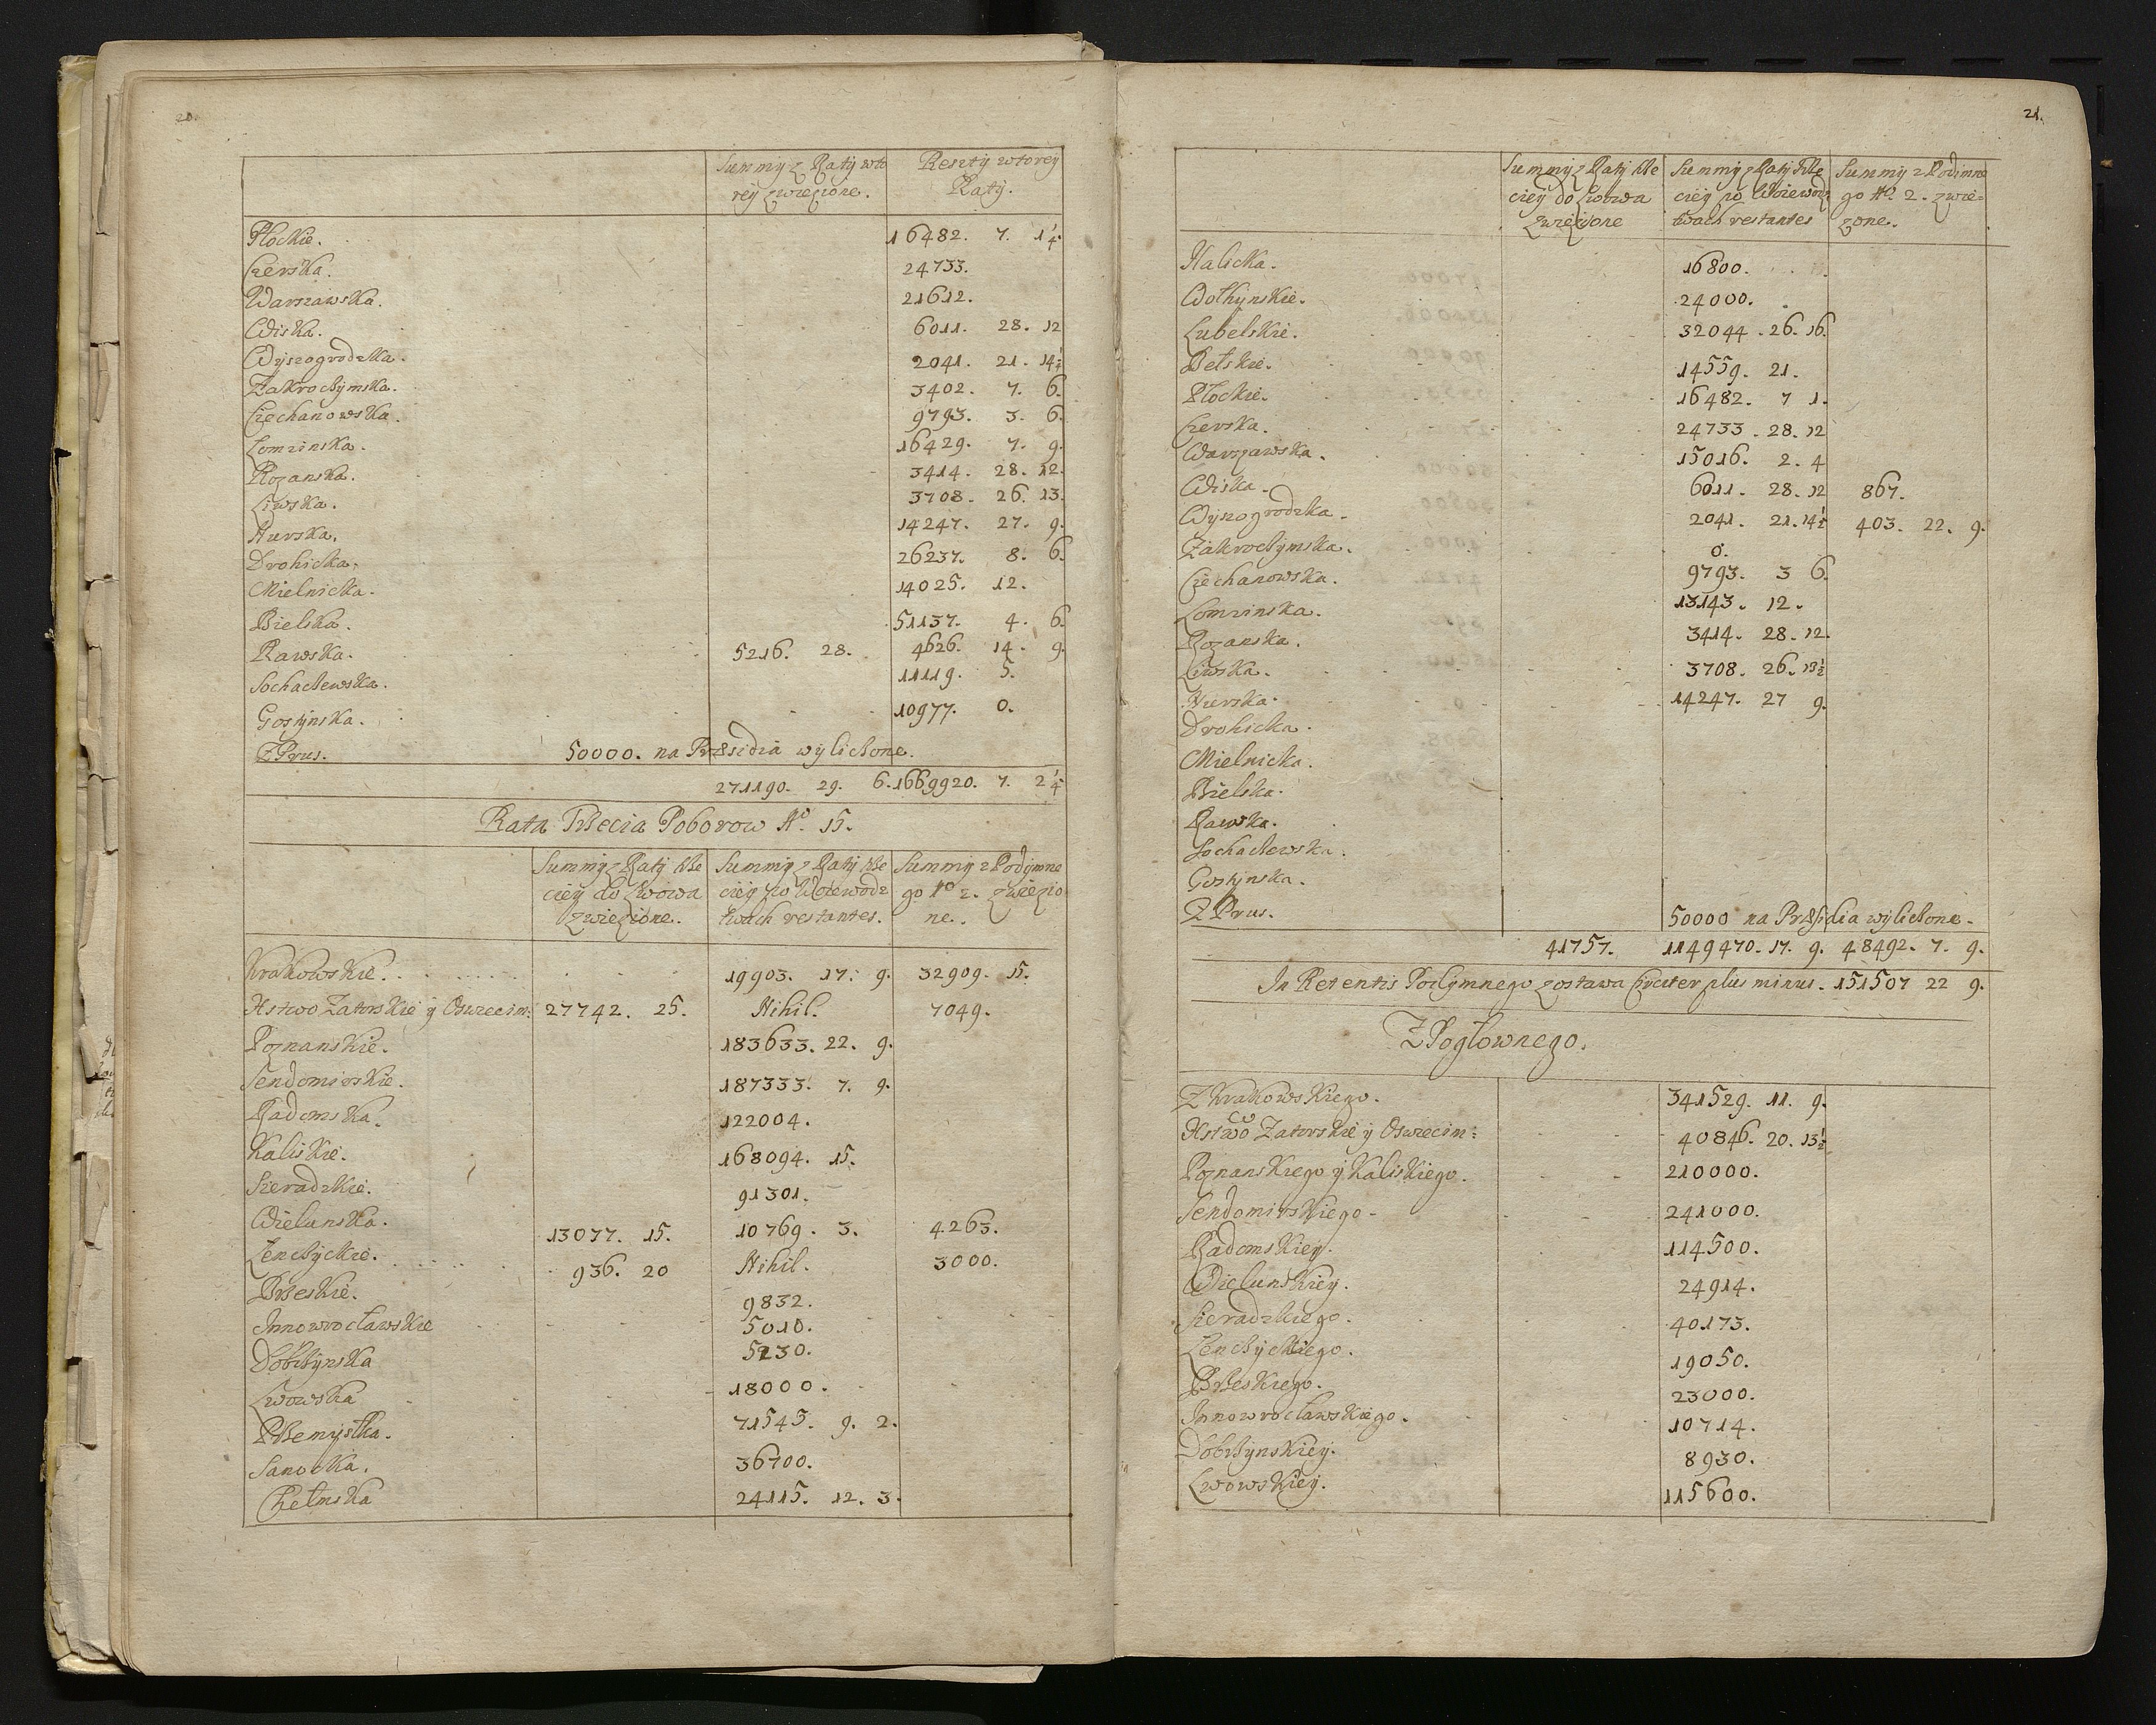 20.
Summy z Raty wto Reszty wtorey
rey zwiezione. Raty.
Płockie. 16482. 7. 1 1/4.
Czerska. 24733.
Warszawska. 21612.
Wiska. 6011. 28. 12
Wyszogrodzka. 2041. 21. 14 1/2
Zakroczymska. 3402. 7. 6.
Ciechanowska. 9793. 3. 6.
Łomzinska. 16429. 7. 9.
Rozanska. 3414. 28. 12.
Liwska. 3708. 26. 13.
Nurska. 14247. 27. 9.
Drohicka. 26237. 8. 6.
Mielnicka. 14025. 12.
Bielska. 51137. 4. 6.
Rawska. 5216. 28. 4626. 14. 9.
Sochaczewska. 11119. 5.
Gostynska. 10977. 0.
Z Prus. 50000. na Præsidia wyliczone.
271190. 29. 6. 1669920. 7. 2 1/4
Rata Trzecia Poborow No. 15.
Summy z Raty trze Summy z Raty trze Summy z Podymne
ciey do Lwowa ciey po Woiewodz go No 2. zwiezio
zwiezione. twach restantes. ne.
Krakowskie. 19903. 17. 9. 32909. 15.
Xstwo Zatorskie y Oswiecim: 27742. 25. Nihil. 7049.
Poznanskie. 183633. 22. 9.
Sendomirskie. 187333. 7. 9.
Radomska. 122004.
Kaliskie. 168094. 15.
Sieradzkie. 91301.
Wielunska. 13077. 15. 10769. 3. 4263.
Lenczyckie. 936. 20 Nihil. 3000.
Brzeskie. 9832.
Innowrocławskie 5010.
Dobrzynska 5230.
Lwowska 18000.
Przemyslka. 71545. 9. 2.
Sanocka. 36700.
Chełmska 24115. 12. 3.
21.
Summy z Raty trze Summy z Raty trze Summy z Podimne
ciey do Lwowa ciey po Woiewodz go No. 2. zwie-
zwiezione twach restantes zone.
Halicka. 16800.
Wołhynskie. 24000.
Lubelskie. 32044. 26. 16.
Bełskie. 14559. 21.
Płockie. 16482. 7 1.
Czerska. 24733. 28. 12
Warszawska. 15016. 2. 4
Wiska. 6011. 28. 12 867.
Wyszogrodzka. 2041. 21. 14 1/2 403. 22. 9.
Zakroczymska. 0.
Ciechanowska. 9793. 3 6.
Lomzinska. 13143. 12.
Rozanska. 3414. 28. 12.
Liwska. 3708. 26. 13 1/2
Nurska. 14247. 27 9.
Drohicka.
Mielnicka.
Bielska.
Rawska.
Sochaczewska.
Gostynska.
Z Prus. 50000 na Præsidia wyliczone.
41757. 1149470. 17. 9. 48492. 7. 9.
In Retentis Podymnego zostawa circiter plus minus. 151507 22 9.
Z Pogłownego.
Z Krakowskiego. 341529. 11. 9.
Xstwo Zatorskie y Oswiecim: 40846. 20. 13 1/2
Poznanskiego y Kaliskiego. 210000.
Sendomirskiego. 241000.
Radomskiey. 114500.
Wielunskiey. 24914.
Sieradzkiego. 40173.
Lenczyckiego. 19050.
Brzeskiego. 23000.
Innowrocławskiego. 10714.
Dobrzynskiey. 8930.
Lwowskiey. 115600.